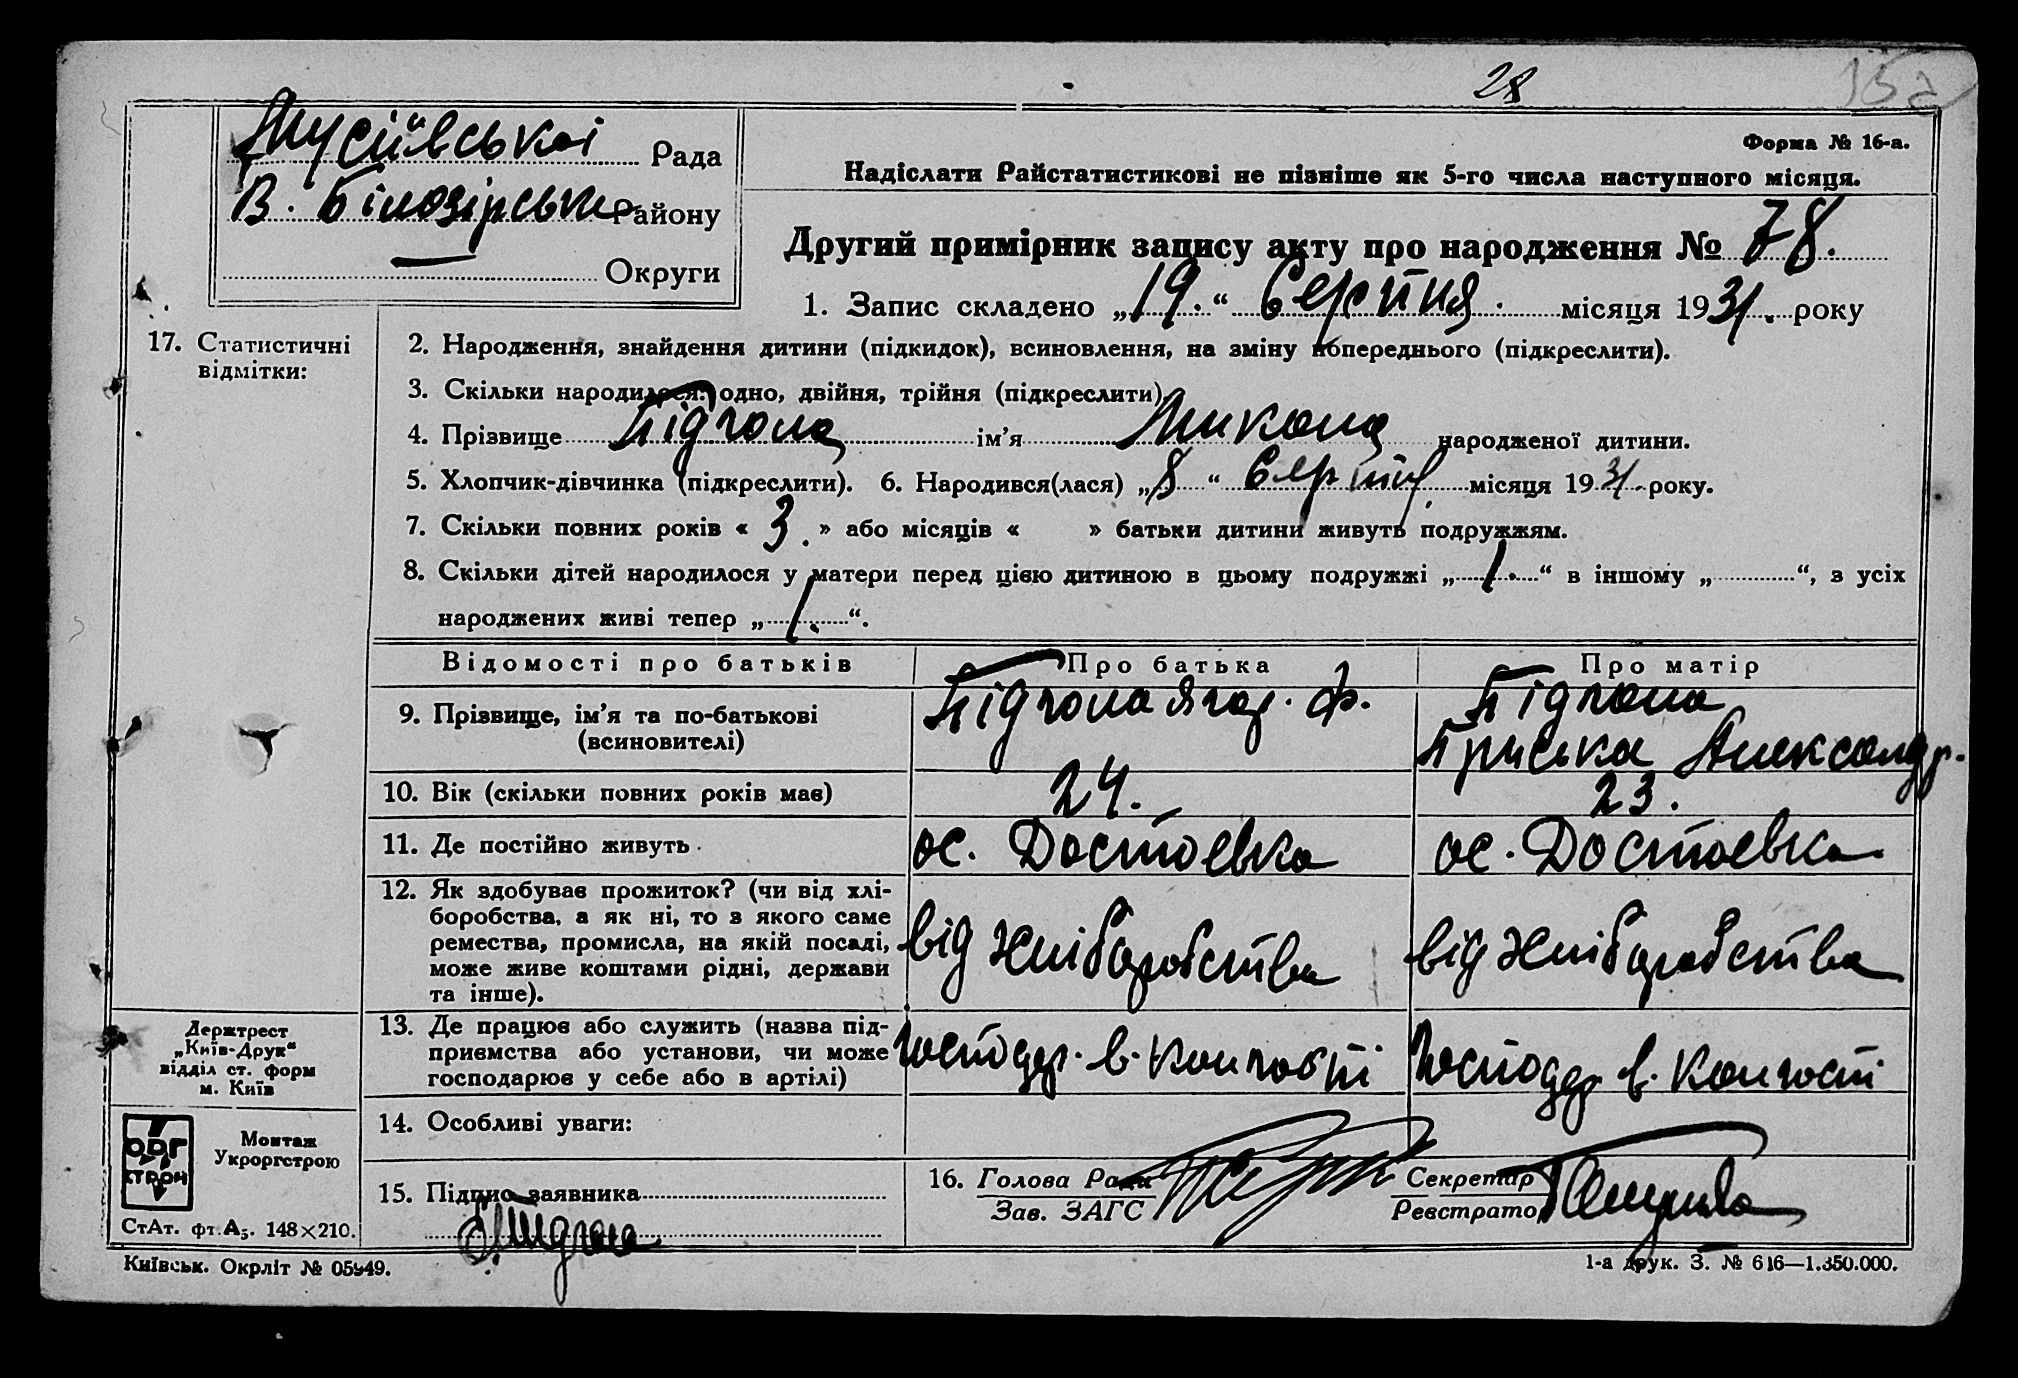 28
15а
Мусіївської Рада
В. Білозірськ Району
Округи
Форма № 16-а.
Надіслати Райстатистикові не пізніше як 5-го числа наступного місяця.
Другий примірник запису акту про народження № 78.
1. Запис складено „19.“ Серпня. місяця 1931. року
17. Статистичні
відмітки:
2. Народження, знайдення дитини (підкидок), всиновлення, на зміну попереднього (підкреслити).
3. Скільки народилося: одно, двійня, трійня (підкреслити)
4. Прізвище Підгола ім’я Микола народженої дитини.
5. Хлопчик-дівчинка (підкреслити). 6. Народився(лася) „8“ Серпня місяця 1931. року.
7. Скільки повних років « 3. » або місяців « » батьки дитини живуть подружжям.
8. Скільки дітей народилося у матери перед цією дитиною в цьому подружжі „1.“ в іншому „ “, з усіх
народжених живі тепер „1.“.
Відомості про батьків Про батька Про матір
9. Прізвище, ім’я та по-батькові
(всиновителі)
Підгола Ф.
Підгола
Приська Александр.
10. Вік (скільки повних років має) 24. 23.
11. Де постійно живуть ос. Достоевка ос. Достоевка
12. Як здобуває прожиток? (чи від хлі-
боробства, а як ні, то з якого саме
ремества, промисла, на якій посаді,
може живе коштами рідні, держави
та інше).
від хліборобства від хліборобства
13. Де працює або служить (назва під-
приємства або установи, чи може
господарює у себе або в артілі)
господар. в. колгоспі господар в. колгоспі
14. Особливі уваги:
15. Підпис заявника
16. Голова Ради
Зав. ЗАГС
Секретар
Реєстратор
Держтрест
„Київ-Друк“
відділ ст. форм
м. Київ
ОРГ
СТРОЙ
Монтаж
Укроргстрою
СтАт. фт. А₅. 148×210.
Київськ. Окрліт № 05949.
1-а друк. З. № 616—1.350.000.